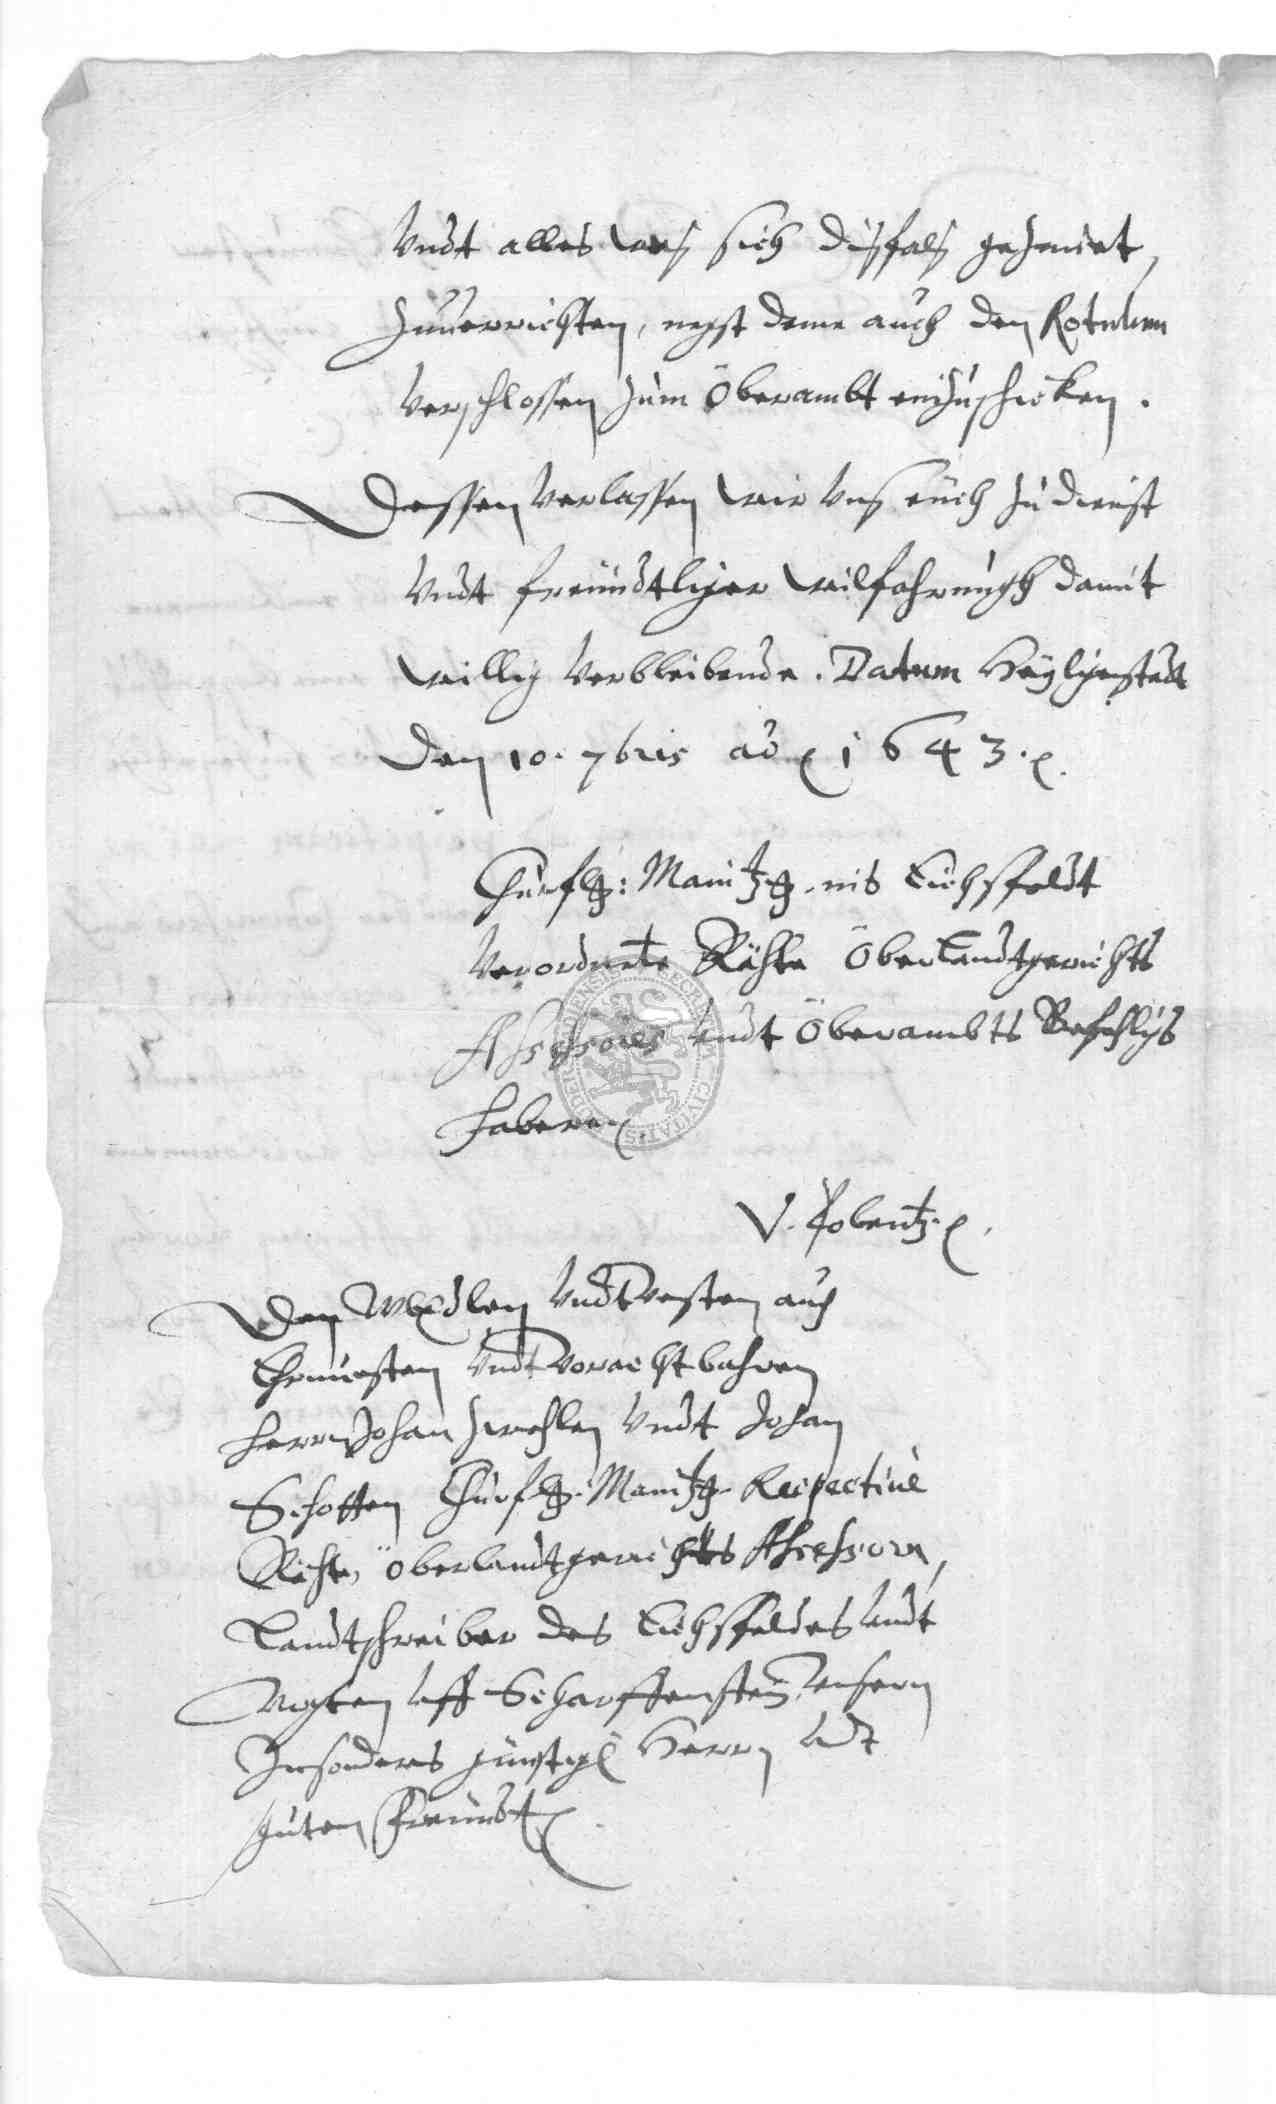 Vndt alles was sich dißfals geziemet,
zuuerrichten, negst deme auch den Rotulum
verschlossen zum Oberambt einzuschicken.
Dessen verlassen wir Vnß euch zu dienst
Vndt freündtlicher wilfahrungh damit
willig verbleibende. Datum Heyligenstadt
den 10. 7bris ao 1643.
Churfl: Maintz. vfs Eichsfeldt
Verordnete Räthe Oberlandtgerichts
Assessores undt Oberambts Befehlchs
habere.
V. Cobentz.
Den WEdlen Vndt Vesten auch
Ehrnuesten Vndt Vorachtbahren
Herrn Johan Zwehlen Vndt Johan
Schotten Churfl. Maintz. Respectiue
Räthe, Oberlandtgerichts Assessorn,
Landtschreiber des Eichsfeldes undt
Vogten vff Scharffenstein, Unsern
Insonders günstigen Herrn Vndt
guten Freündt